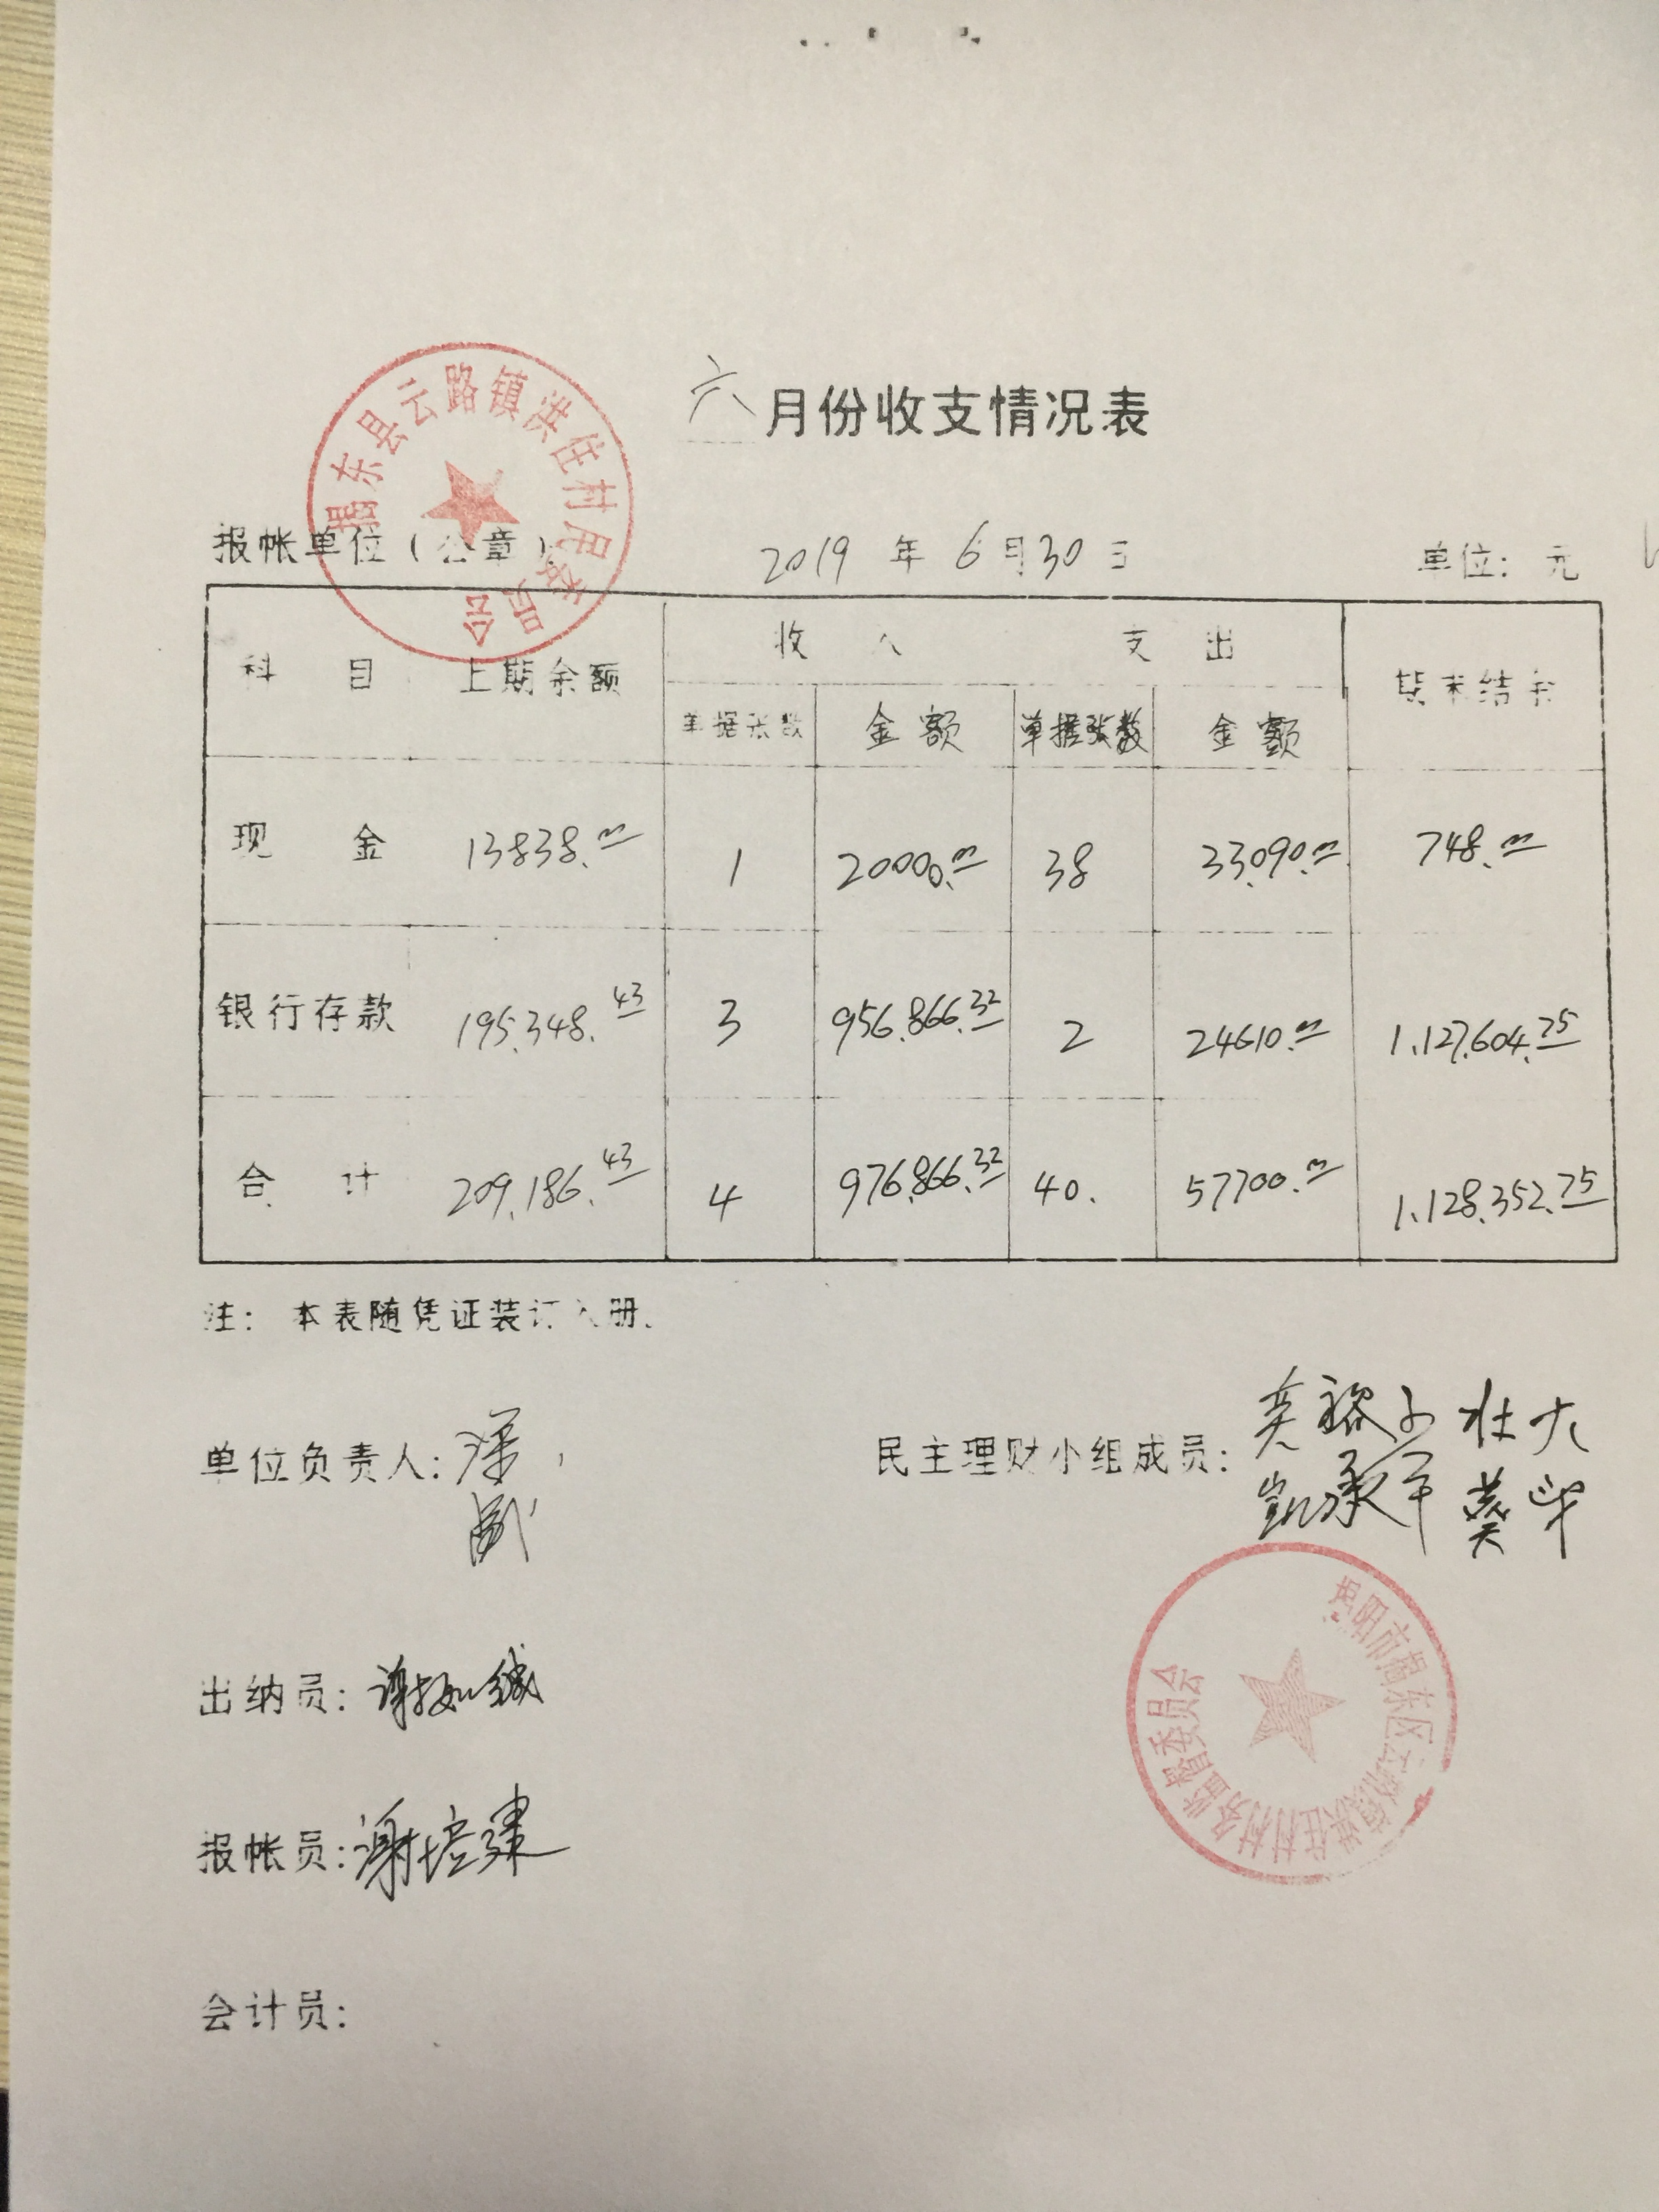 六月份收支情况表
揭东县云路镇洪住村民委员会
报帐单位(公章) 2019年6月30日 单位:元
科目 上期余额 收入 支出 期末结余
单据张数 金额 单据张数 金额
现金 13838.00 1 20000.00 38 33.090.00 748.00
银行存款 195.348.43 3 956.866.32 2 24610.00 1.127.604.75
合计 209.186.43 4 976.866.32 40. 57700.00 1.128.352.75
注:本表随凭证装订入册.
单位负责人: 民主理财小组成员:
壮大
凯
揭阳市揭东区云路镇洪住村村务监督委员会
出纳员:谢
报帐员:谢培
会计员: